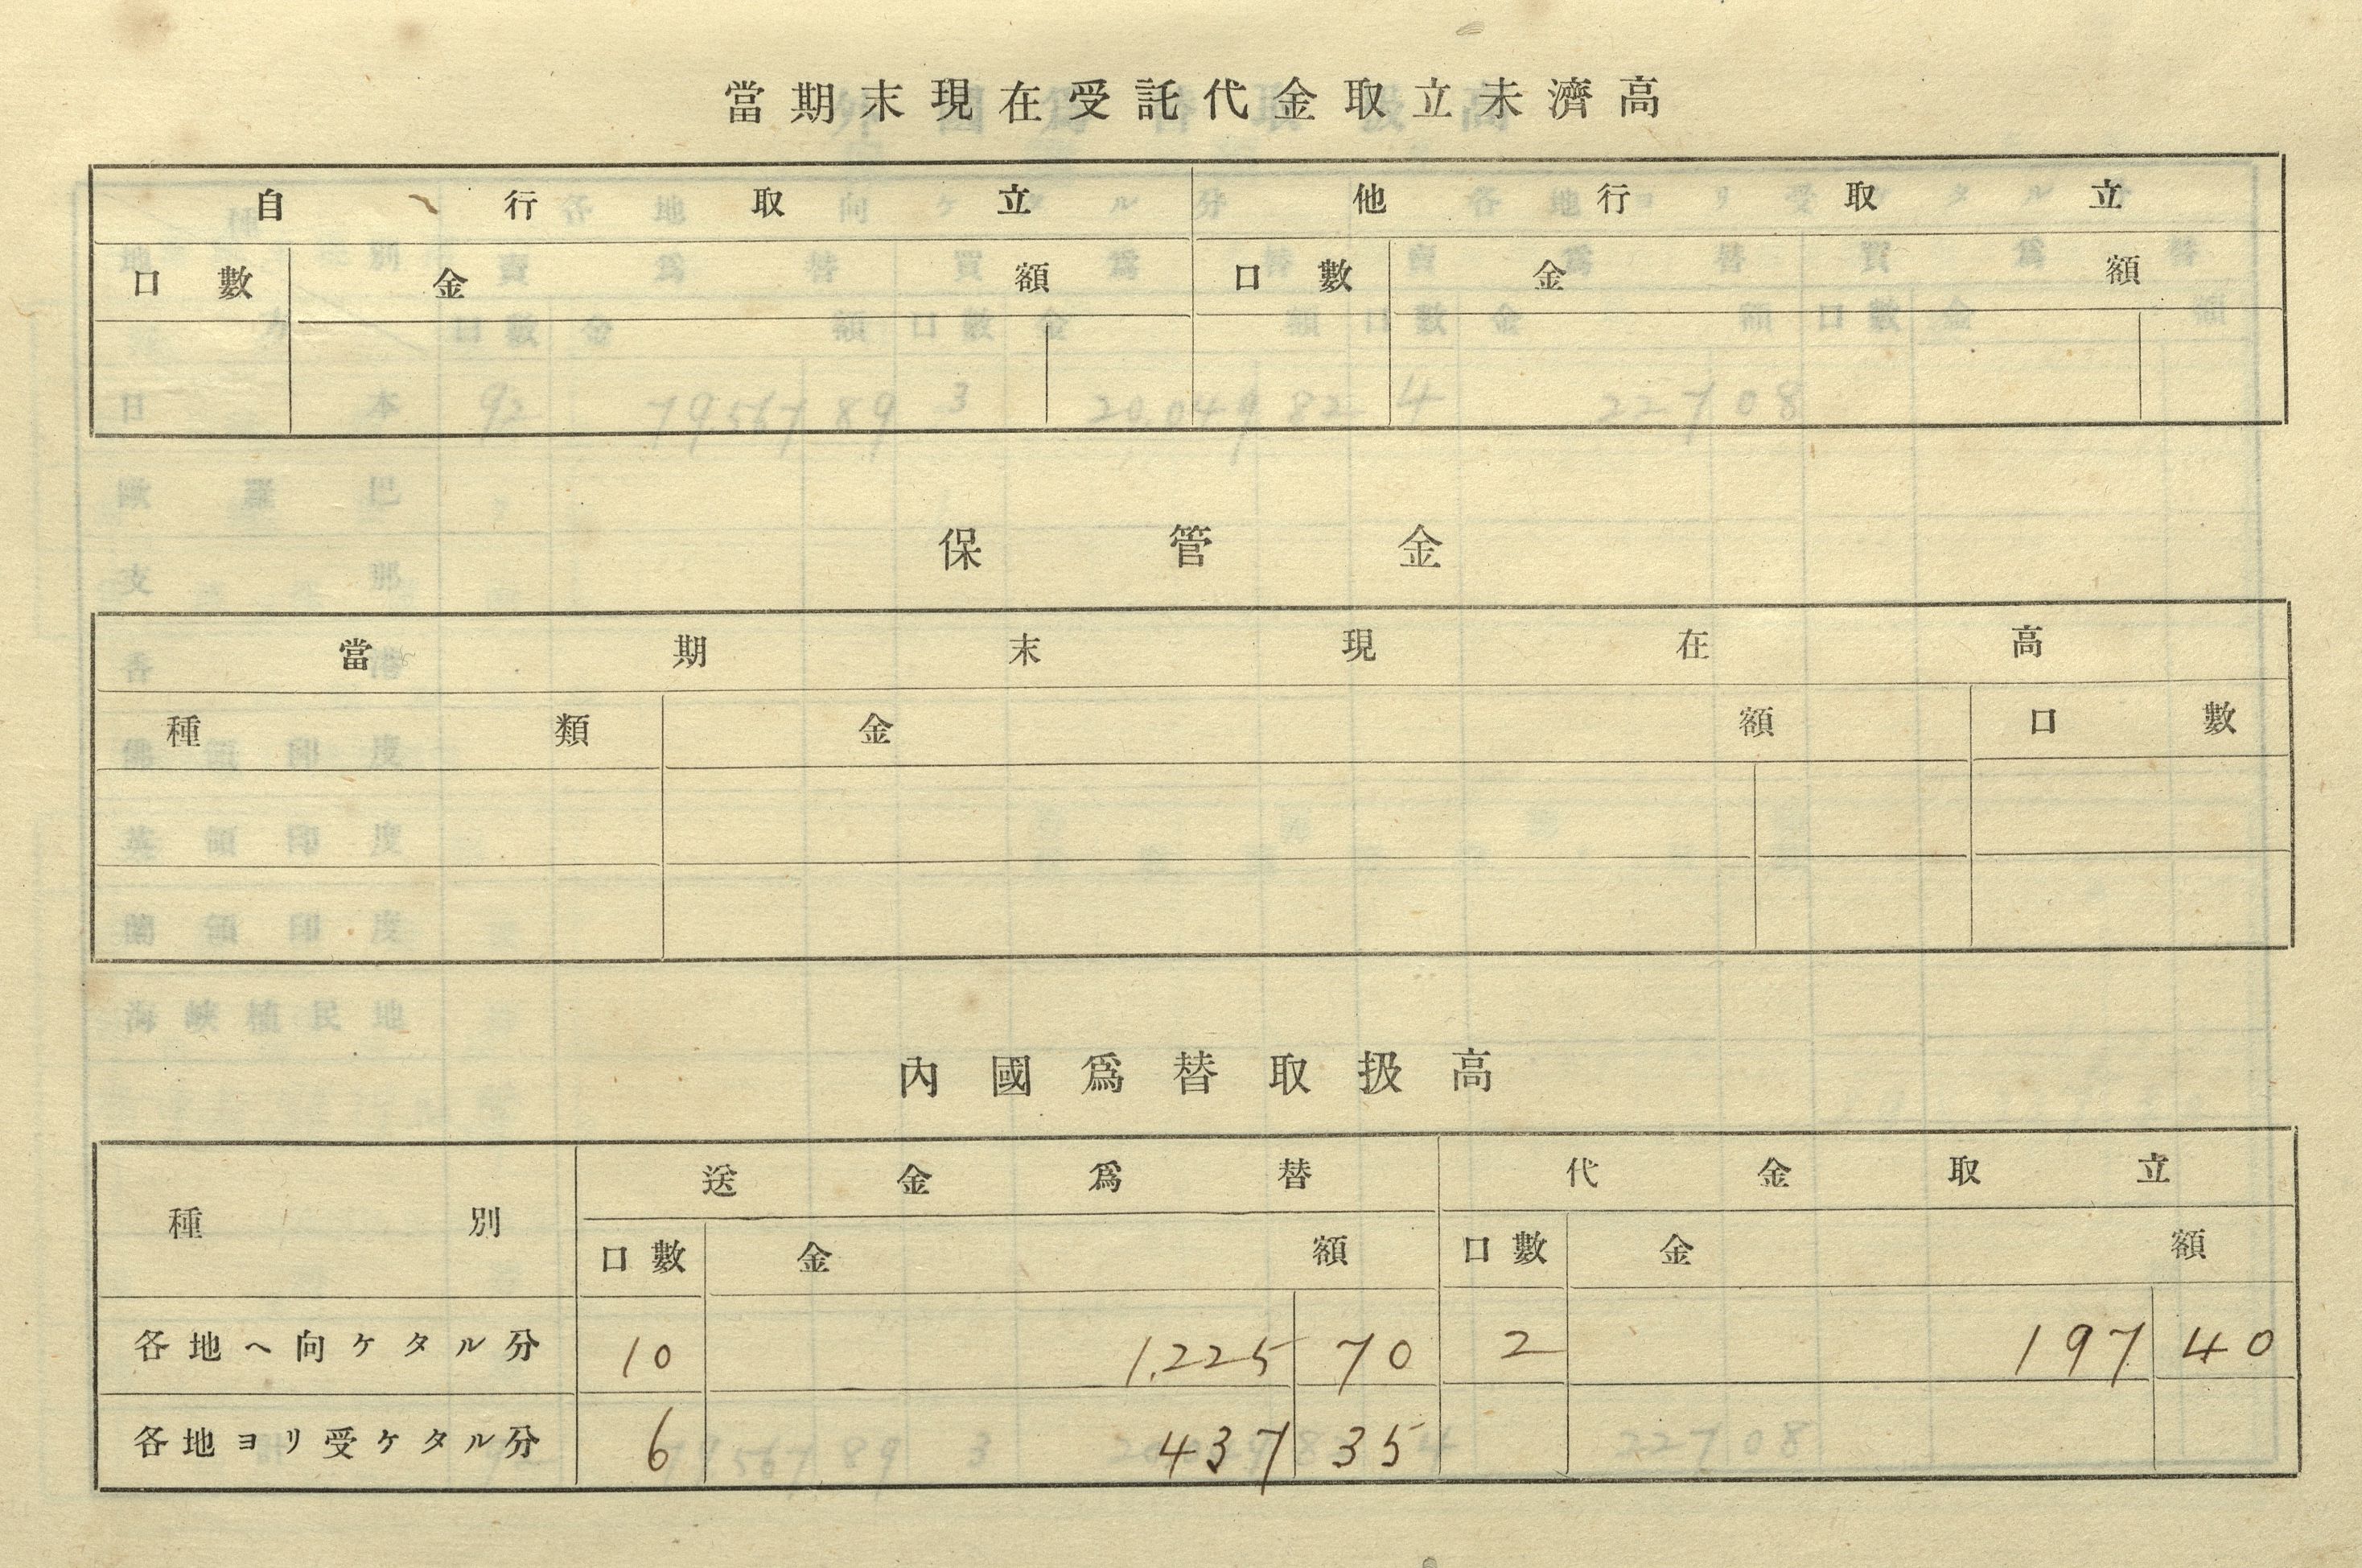 當期末現在受託代金取立未濟高
自行取立 他行取立
口數 金額 口數 金額
保管金
當期末現在高
種類 金額 口數
內國爲替取扱高
種別 送金爲替 代金取立
口數 金額 口數 金額
各地へ向ケタル分 10 1,225 70 2 197 40
各地ヨリ受ケタル分 6 437 35